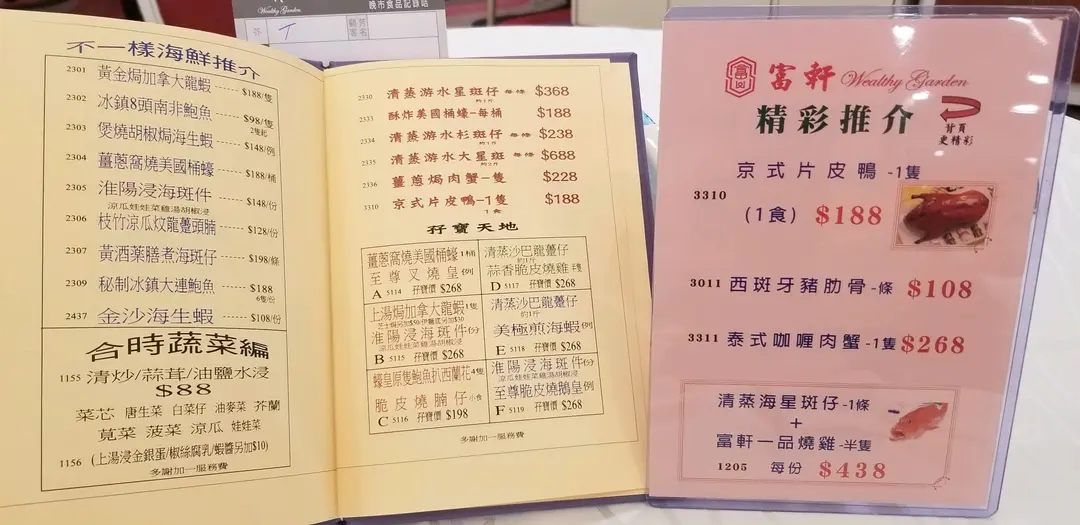 Wealthy Garden
晚市食品記錄咭
芥
T
顧客
芳名
不一樣海鮮推介
2301 黃金焗加拿大龍蝦 $188/隻
2302 冰鎮8頭南非鮑魚 $98/隻
2隻起
2303 煲燒胡椒焗海生蝦 $148/例
2304 薑蔥窩燒美國桶蠔 $188/桶
2305 淮陽浸海斑件 $148/份
涼瓜娃娃菜雞湯胡椒浸
2306 枝竹涼瓜炆龍躉頭腩 $128/份
2307 黃酒薬膳煮海斑仔 $198/條
2309 秘制冰鎮大連鮑魚 $188
6隻/份
2437 金沙海生蝦 $108/份
合時蔬菜編
1155 清炒/蒜茸/油鹽水浸
$88
菜芯 唐生菜 白菜仔 油麥菜 芥蘭
莧菜 菠菜 涼瓜 娃娃菜
1156 (上湯浸金銀蛋/椒絲腐乳/蝦醬另加$10)
多謝加一服務費
2330 清蒸游水星斑仔 每條 $368
約1斤
2333 酥炸美國桶蠔-每桶 $188
2334 清蒸游水杉斑仔 每條 $238
約1斤
2335 清蒸游水大星斑 每條 $688
約2斤
2336 薑蔥焗肉蟹-隻 $228
3310 京式片皮鴨-1隻 $188
1食
孖寶天地
薑蔥窩燒美國桶蠔1桶
至尊叉燒皇例
A 5114 孖寶價 $268
清蒸沙巴龍躉仔
約1斤
蒜香脆皮燒雞半隻
D 5117 孖寶價 $268
上湯焗加拿大龍蝦1隻
芝士焗另加$50/伊麵底另加$30
淮陽浸海斑件(份)
涼瓜娃娃菜雞湯胡椒浸
B 5115 孖寶價 $268
清蒸沙巴龍躉仔
約1斤
美極煎海蝦例
E 5118 孖寶價 $268
蠔皇原隻鮑魚扒西蘭花4隻
脆皮燒腩仔小食
C 5116 孖寶價 $198
淮陽浸海斑件(份)
涼瓜娃娃菜雞湯胡椒浸
至尊脆皮燒鵝皇例
F 5119 孖寶價 $268
多謝加一服務費
富軒 Wealthy Garden
精彩推介
背頁
更精彩
京式片皮鴨-1隻
3310
(1食) $188
3011 西班牙豬肋骨-條 $108
3311 泰式咖喱肉蟹-1隻 $268
清蒸海星斑仔-1條
+
富軒一品燒雞-半隻
1205 每份 $438